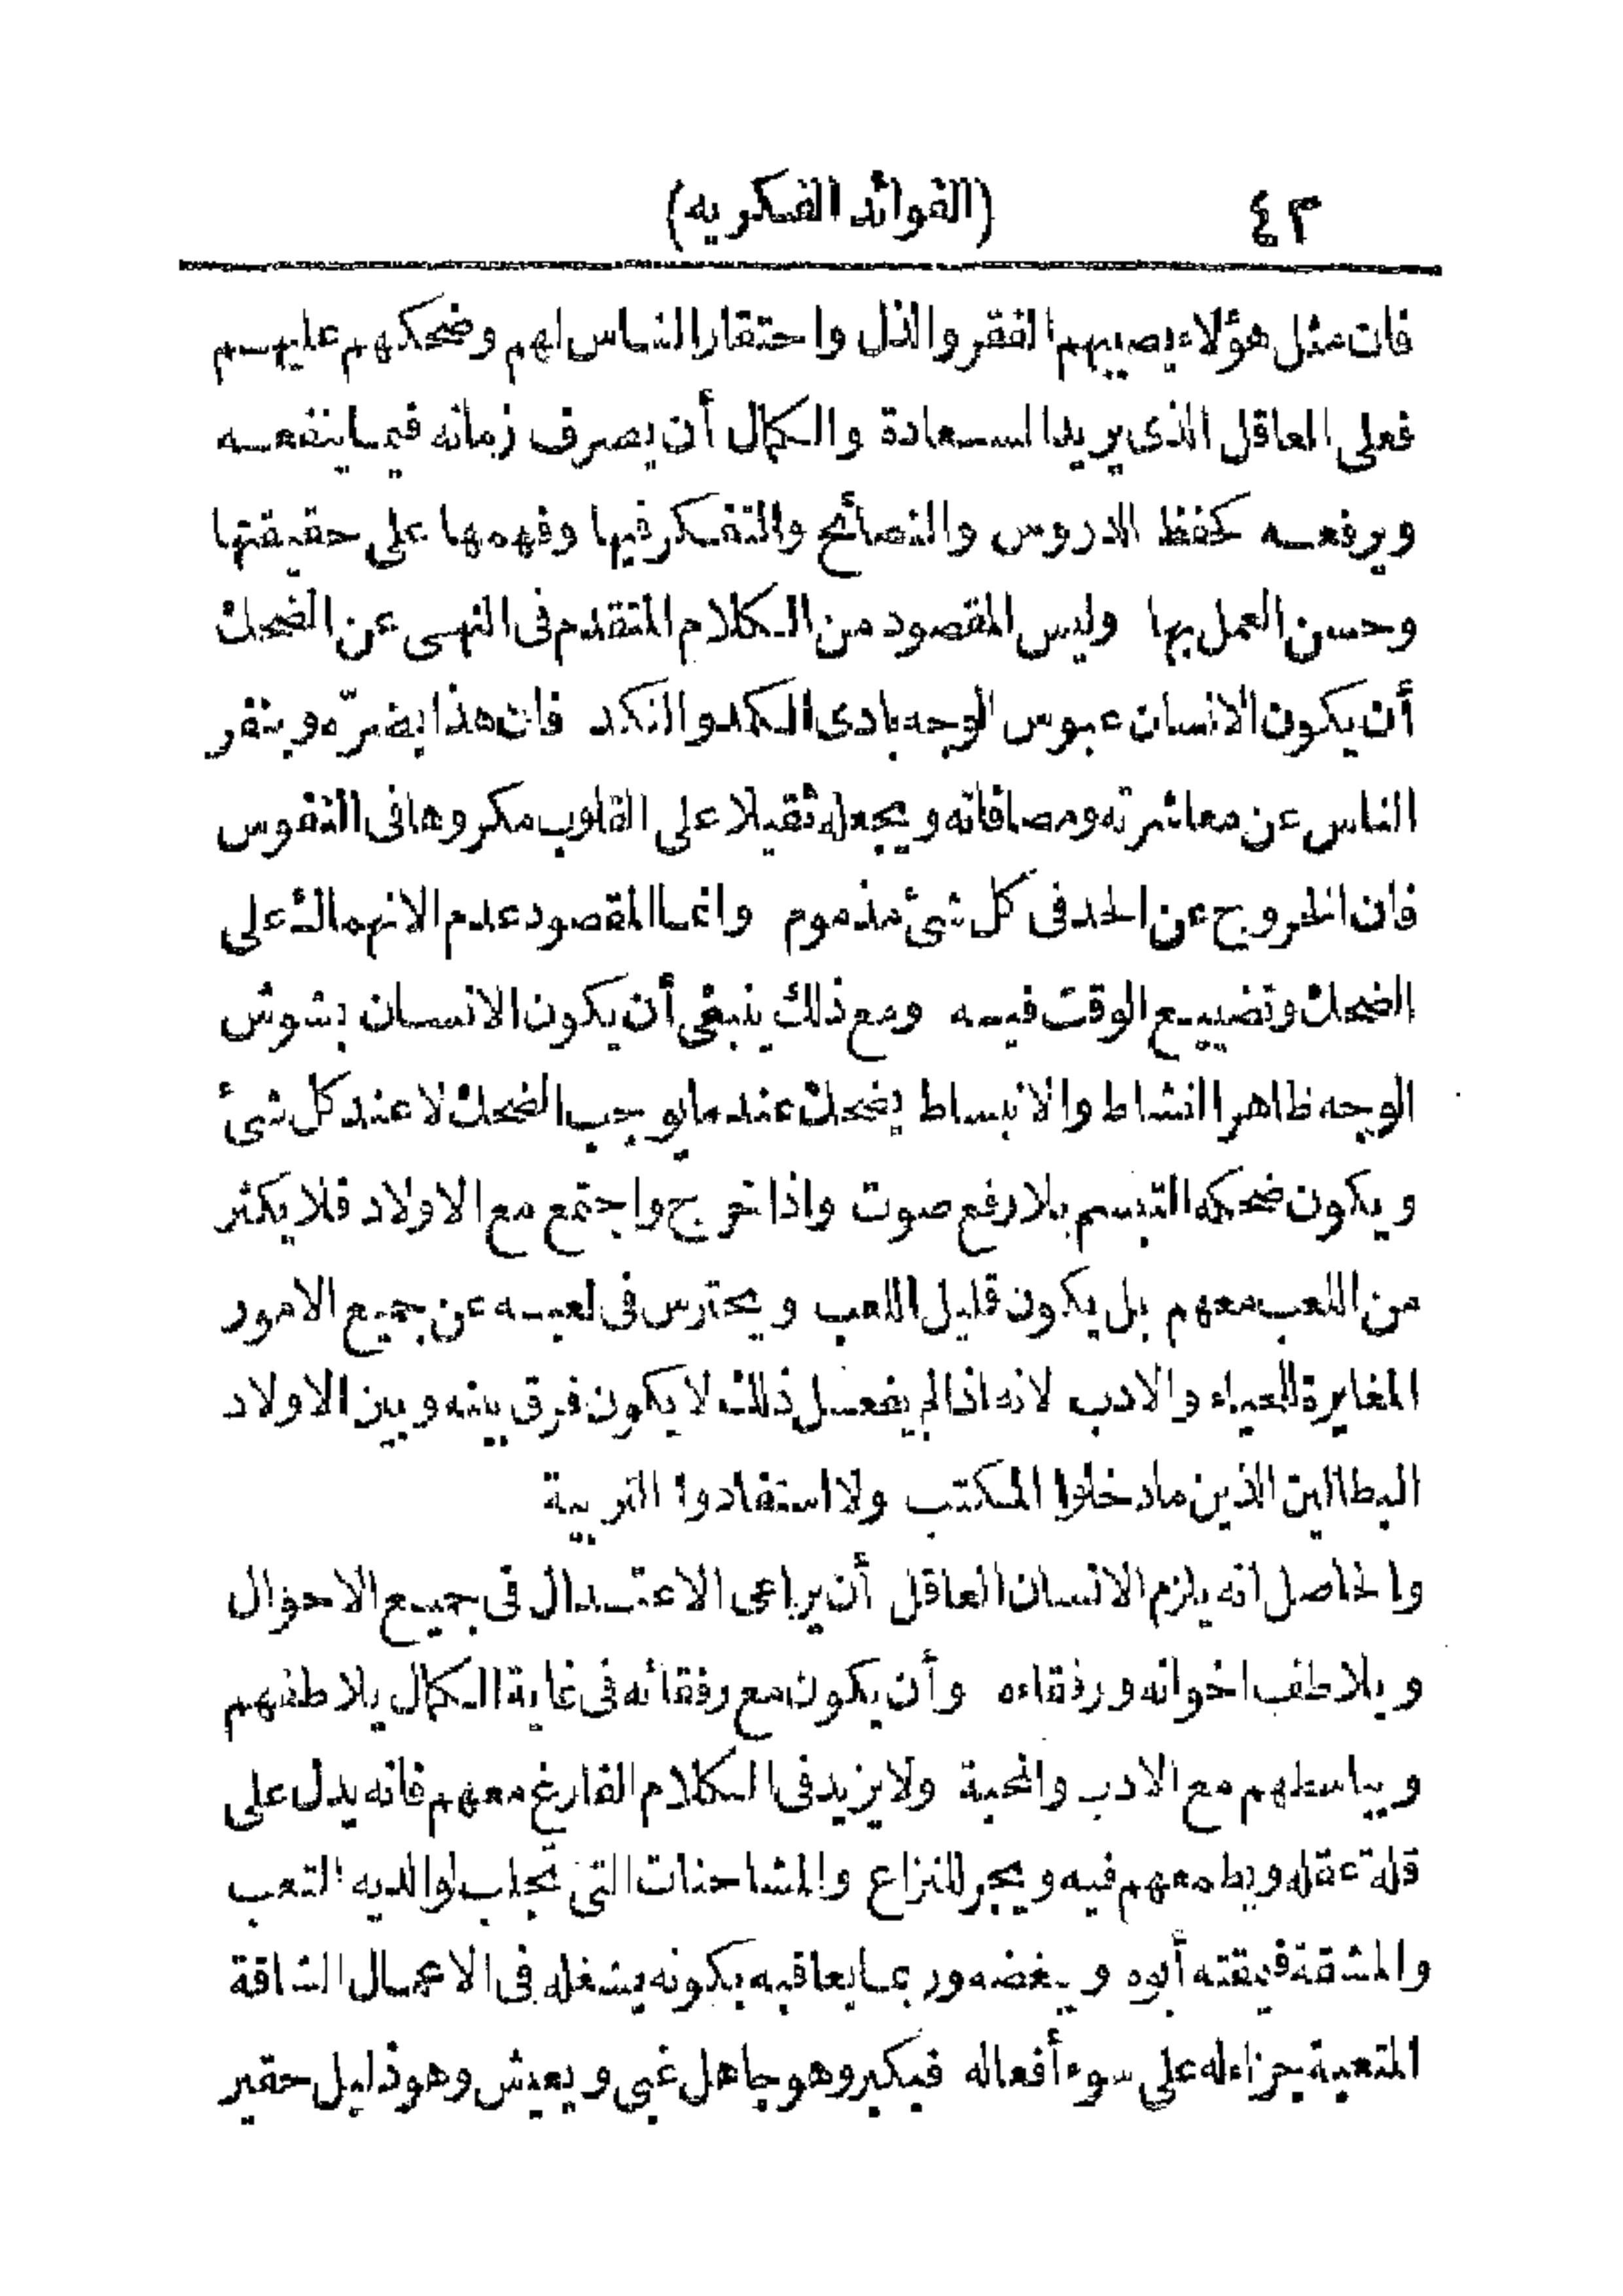 ٤٣ (الفوائد الفكريه)
فان مثل هؤلاء يصيبهم الفقر والذل واحتقار الناس لهم وضحكهم عليهم
فعلى العاقل الذى يريد السعادة والكمال أن يصرف زمانه فيما ينفعه
ويرفعه كحفظ الدروس والنصائح والتفكر فيها وفهمها على حقيقتها
وحسن العمل بها وليس المقصود من الكلام المتقدم فى النهى عن الضحك
أن يكون الانسان عبوس الوجه بادى الكمد والنكد فان هذا يضرّه وينفر
الناس عن معاشرته ومصافاته ويجعله ثقيلا على القلوب مكروها فى النفوس
فان الخروج عن الحد فى كل شئ مذموم وانما المقصود عدم الانهماك على
الضحك وتضييع الوقت فيه ومع ذلك ينبغى أن يكون الانسان بشوش
الوجه ظاهر النشاط والانبساط يضحك عند ما يوجب الضحك لا عند كل شئ
ويكون ضحكه التبسم بلا رفع صوت واذا خرج واجتمع مع الاولاد فلا يكثر
من اللعب معهم بل يكون قليل اللعب ويحترس فى لعبه عن جميع الامور
المغايرة للحياء والادب لانه اذا لم يفعل ذلك لا يكون فرق بينه وبين الاولاد
البطالين الذين ما دخلوا المكتب ولا استفادوا التربية
والحاصل انه يلزم الانسان العاقل أن يراعى الاعتدال فى جميع الاحوال
ويلاطف اخوانه ورفقاءه وأن يكون مع رفقائه فى غاية الكمال يلاطفهم
ويباسطهم مع الادب والمحبة ولا يزيد فى الكلام الفارغ معهم فانه يدل على
قلة عقله ويطمعهم فيه ويجر للنزاع والمشاحنات التى تجلب لوالديه التعب
والمشقة فيمقته أبوه ويبغضه وربما يعاقبه بكونه يشغله فى الاعمال الشاقة
المتعبة جزاء له على سوء أفعاله فيكبر وهو جاهل غبى ويعيش وهو ذليل حقير